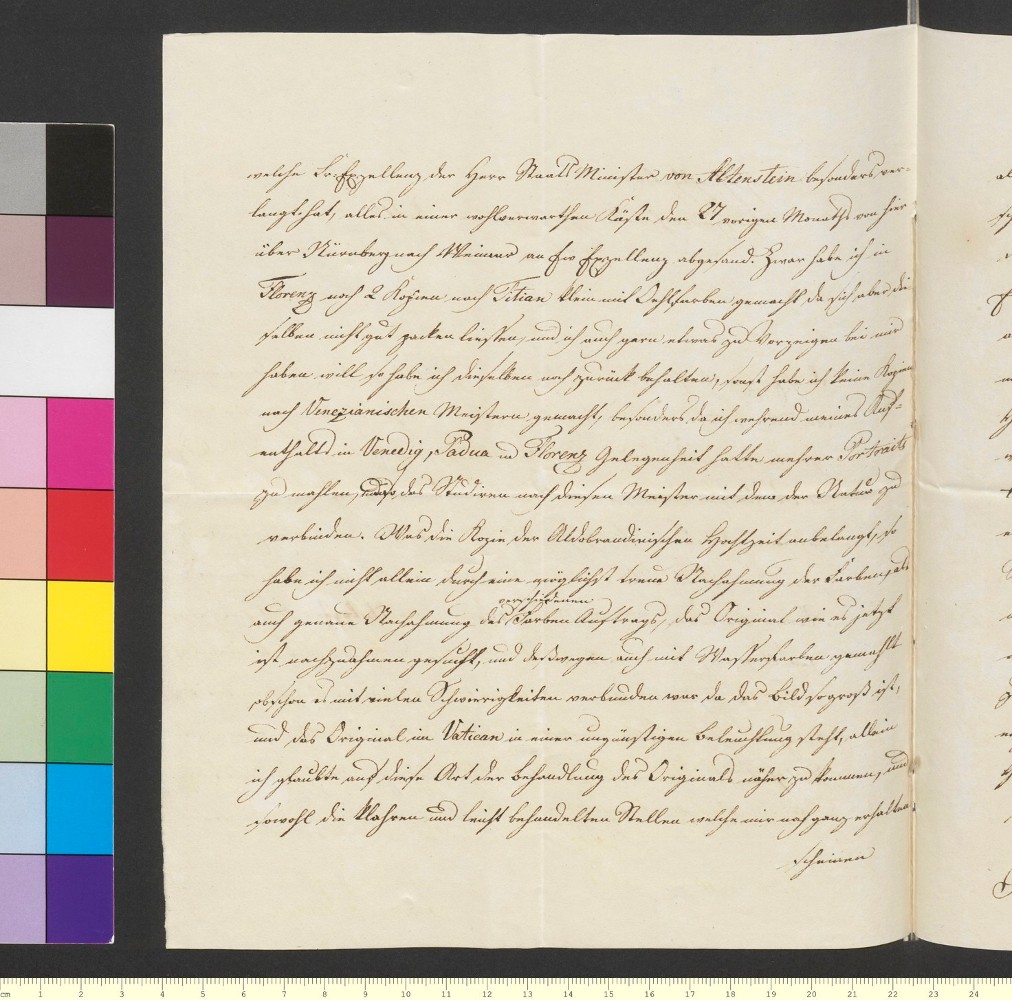 welche Sr. Exzellenz der Herr Staats Minister von Altenstein besonders ver-
langt hat, alles in einer wohlverwarthen Kiste den 27 vorigen Monaths von hier
über Nürnberg nach Weimar an Ew Exzellenz abgesand. Zwar habe ich in
Florenz noch 2 Kopien nach Titian klein mit Oehlfarben gemacht, da sich aber die-
selben nicht gut packen liessen, und ich auch gern etwas zu Vorzeigen bei mir
haben will, so habe ich dieselben noch zurück behalten, sonst habe ich keine Kopien
nach Venezianischen Meistern gemacht, besonders da ich wehrend meines Auf-
enthalts in Venedig, Padua und Florenz Gelegenheit hatte mehrer Portraits
zu mahlen, das Studiren nach diesen Meister mit dem der Natur zu
verbinden. Was die Kopie der Aldobrandinischen Hochzeit anbelangt, so
habe ich nicht allein durch eine möglichst treue Nachahmung der Farben, als
verschiedenen
auch genaue Nachahmung des Farben Auftrags, das Original wie es jetzt
ist nachzuahmen gesucht, und deßwegen auch mit Wasserfarben gemahlt
obschon es mit vielen Schwierigkeiten verbunden war da das Bild so groß ist,
und das Original im Vatican in einer ungünstigen Beleuchtung steht, allein
ich glaubte auf diese Art der Behandlung des Originals näher zu kommen, und
sowohl die klahren und leicht behandelten Stellen welche mir noch ganz erhalten
scheinen